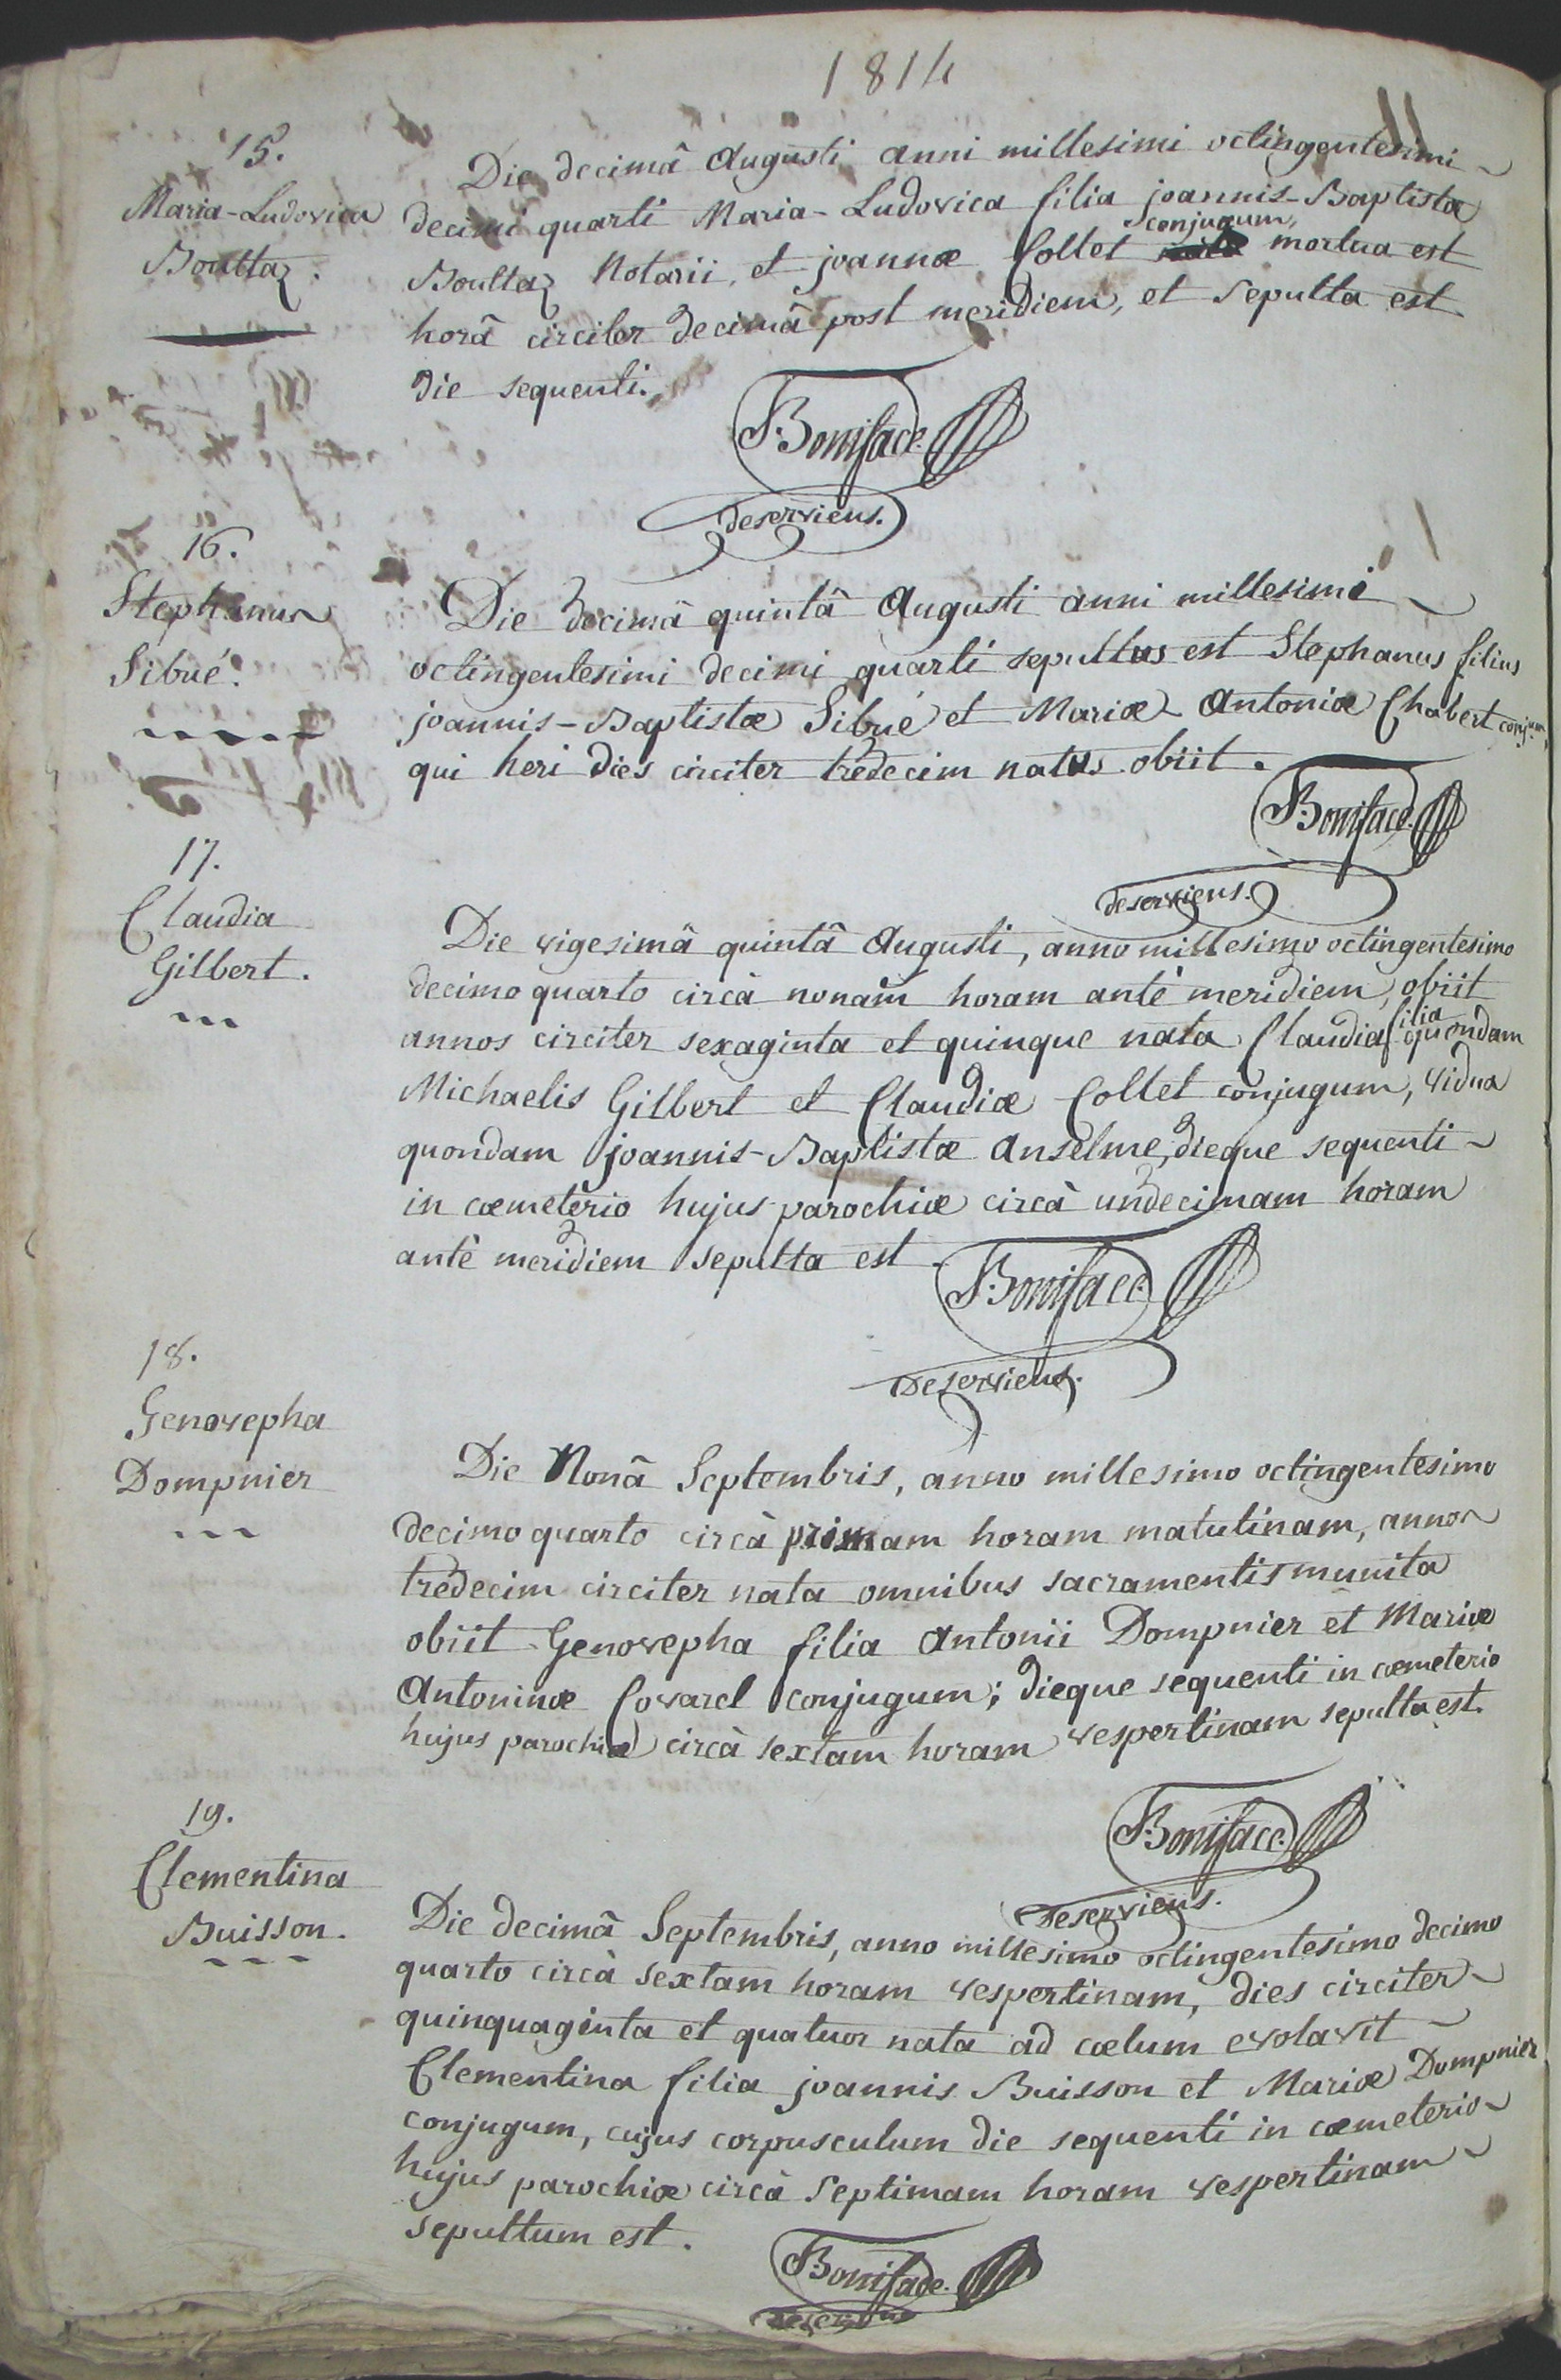 1814
15.
Maria-Ludovica
Boultaz.
Die decimâ Augusti anni millesimi octingentesimi
decimi quarti Maria-Ludovica filia joannis-Baptistæ
conjugum,
Boultaz Notarii, et joannæ Collet mortua est
horâ circiter decimâ post meridiem, et sepulta est
die sequenti.
Boniface
deserviens.
16.
Stephanus
Sibué.
Die decimâ quintâ Augusti anni millesimi
octingentesimi decimi quarti sepultus est Stephanus filius
joannis-Baptistæ Sibué et Mariæ Antoniæ Chabert conjum,
qui heri dies circiter tredecim natus obiit.
Boniface
deserviens.
17.
Claudia
Gilbert.
Die vigesimâ quintâ Augusti, anno millesimo octingentesimo
decimo quarto circà nonam horam antè meridiem, obiit
annos circiter sexaginta et quinque nata Claudia filia quondam
Michaelis Gilbert et Claudiæ Collet conjugum, vidua
quondam joannis-Baptistæ Anselme, dieque sequenti
in cœmeterio hujus parochiæ circà undecimam horam
antè meridiem sepulta est.
Boniface
Deserviens.
18.
Genovepha
Dompnier
Die Nonâ Septembris, anno millesimo octingentesimo
decimo quarto circà primam horam matutinam, annos
tredecim circiter nata omnibus sacramentis munita
obiit Genovepha filia Antonii Dompnier et Mariæ
Antoninæ Covarel conjugum; dieque sequenti in cœmeterio
hujus parochiæ circà sextam horam vespertinam sepulta est.
Boniface.
Deserviens.
19.
Clementina
Buisson.
Die decimâ Septembris, anno millesimo octingentesimo decimo
quarto circà sextam horam vespertinam, dies circiter
quinquaginta et quatuor nata ad cœlum evolavit
Clementina filia joannis Buisson et Mariæ Dompnier
conjugum, cujus corpusculum die sequenti in cœmeterio
hujus parochiæ circà septimam horam vespertinam
sepultum est.
Boniface.
deserviens